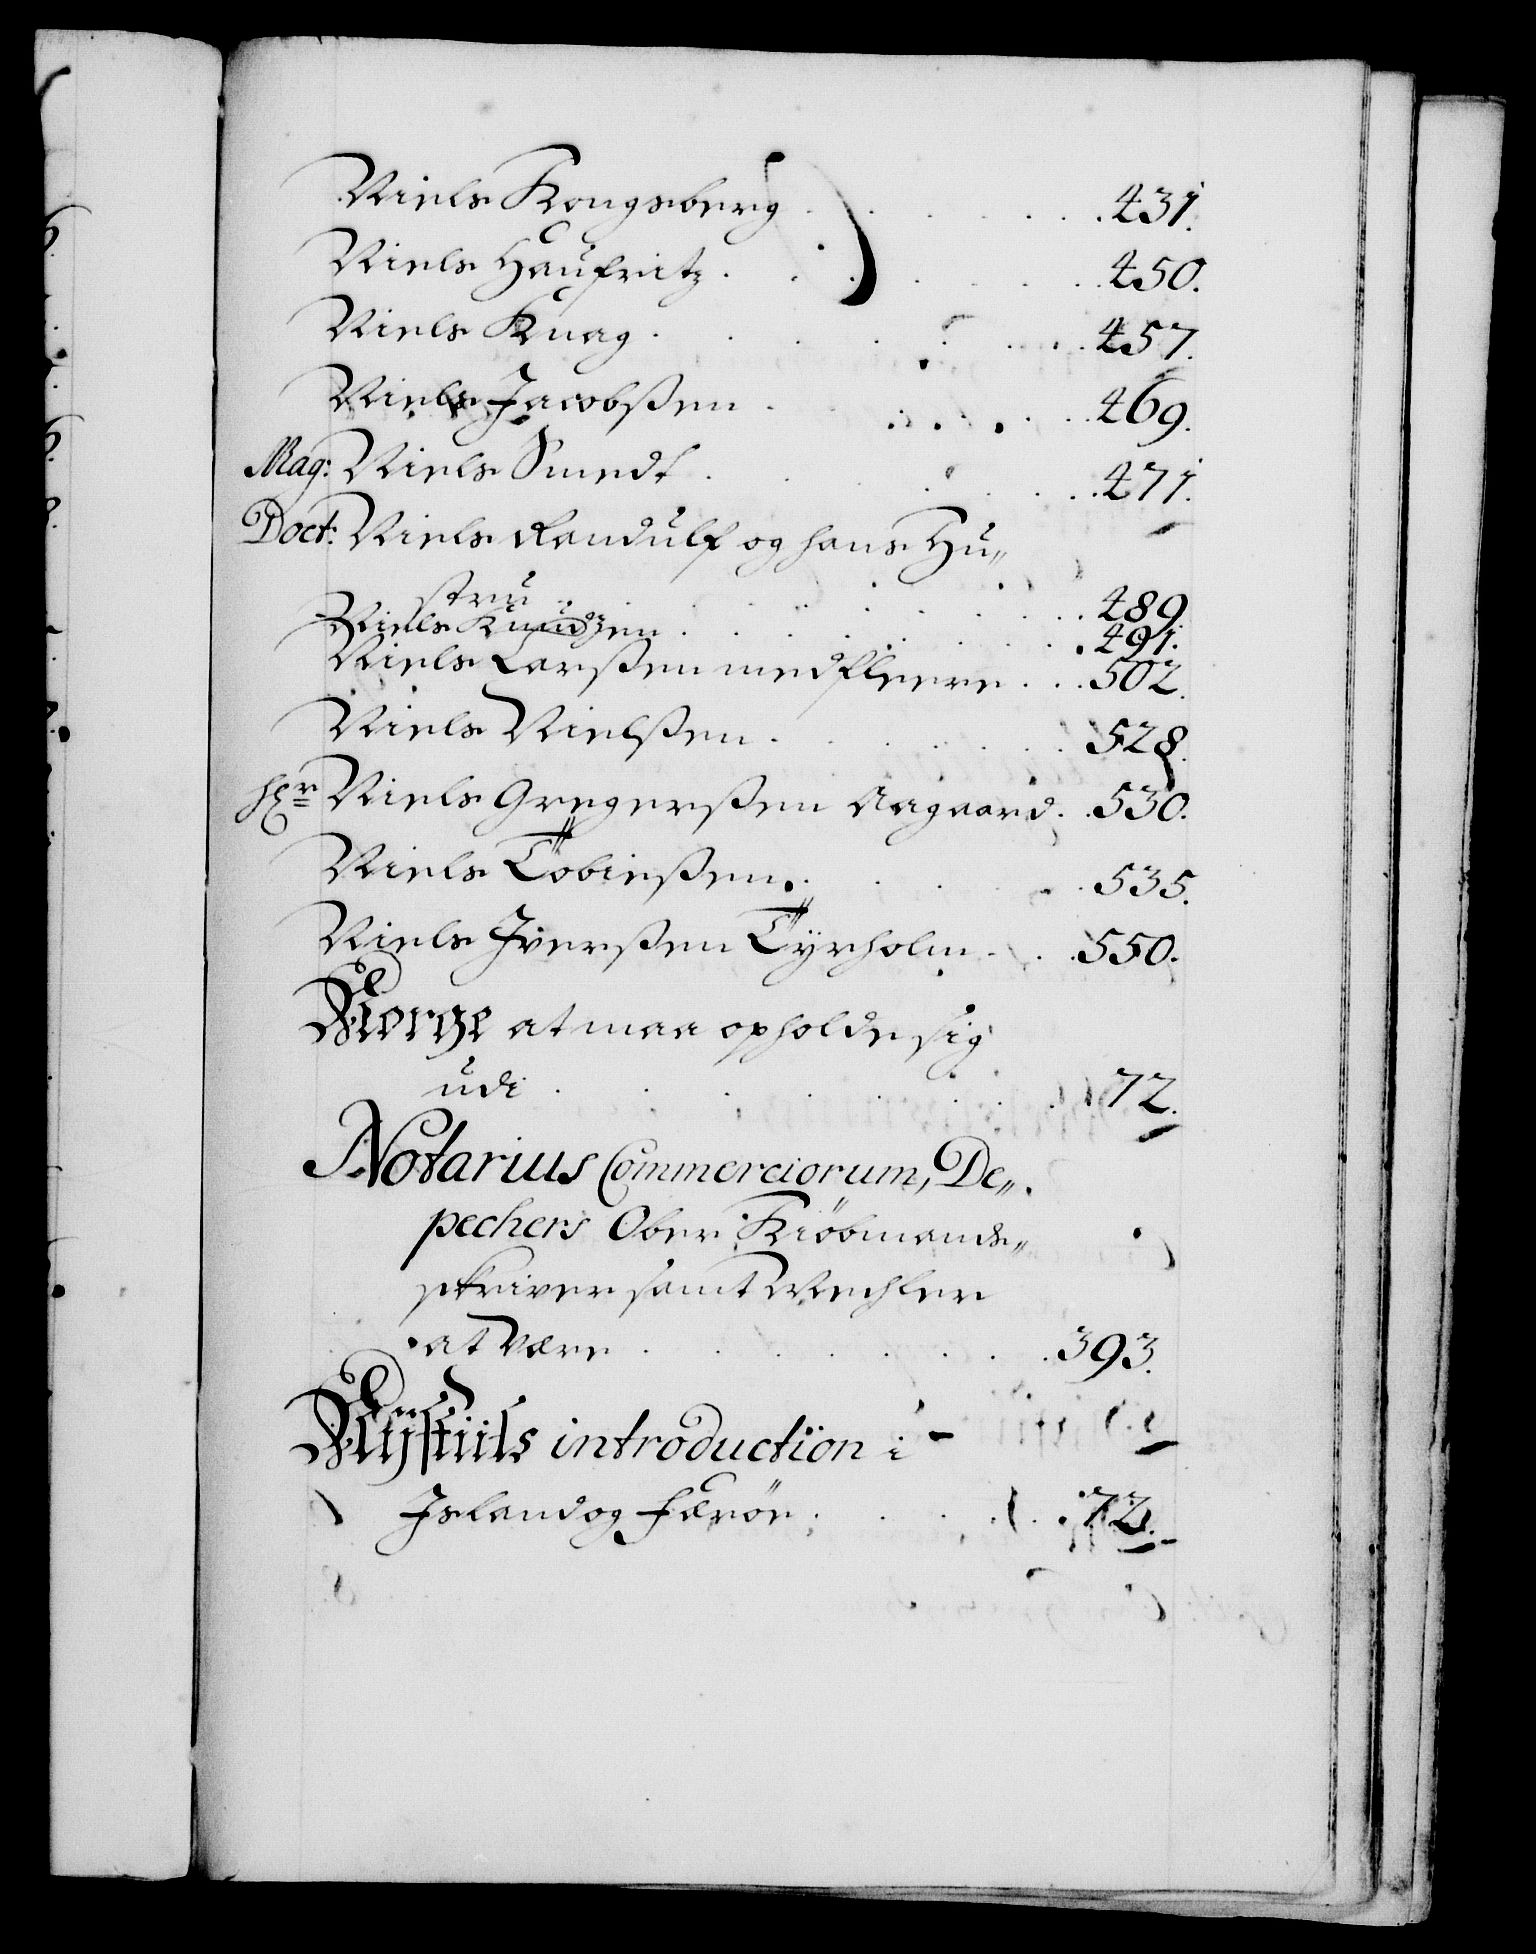 Niels Kongsberg . . . . . . 431.
Niels Haufritz . . . . . . 450.
Niels Knag . . . . . . 457.
Niels Jacobßen . . . . . . 469.
Mag: Niels Smedt . . . . . . 471.
Doct: Niels Randulf og hans Hu„
stru . . . . . . 489
Niels Knudzen . . . . . . 491.
Niels Larßen med fleere . . . 502.
Niels Nielßen . . . . . . 528.
Hr Niels Gregerßen Aagaard . . 530.
Niels Tobießen . . . . . . 535.
Niels Iverßen Tyrholm . . . 550.
Norge at maa opholde sig
udi . . . . . . 72.
Notarius Commerciorum, De„
pechers Ober Kiöbmands„
skriver samt Wechsler
at være . . . . . . 393.
Nÿstiils introduction i
Island og Færöe . . . . . . 72.